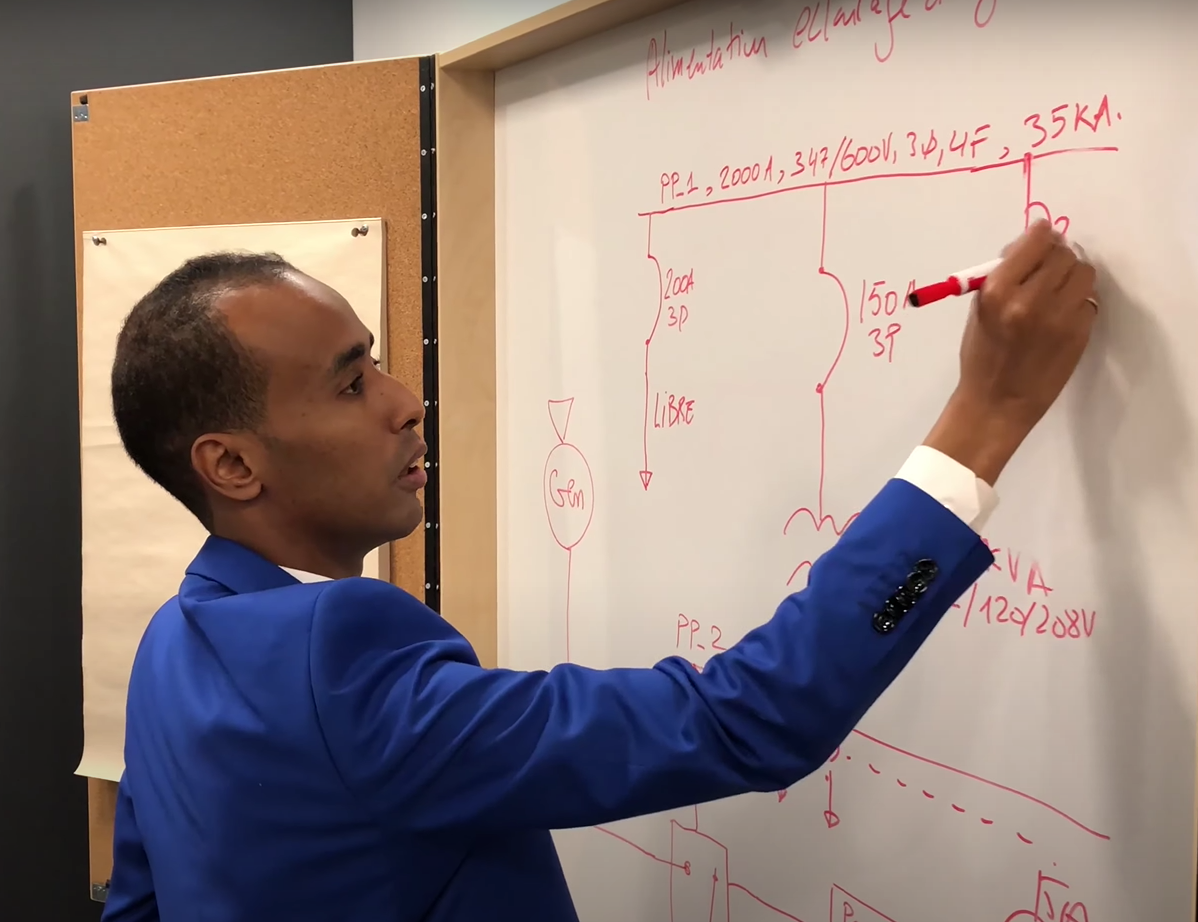 Alimentation éclairage
PP_1, 2000A, 347/600V, 3Φ, 4F, 35KA.
200A
3P
150A
3P
LiBRE
Gen
KVA
/120/208V
PP_2